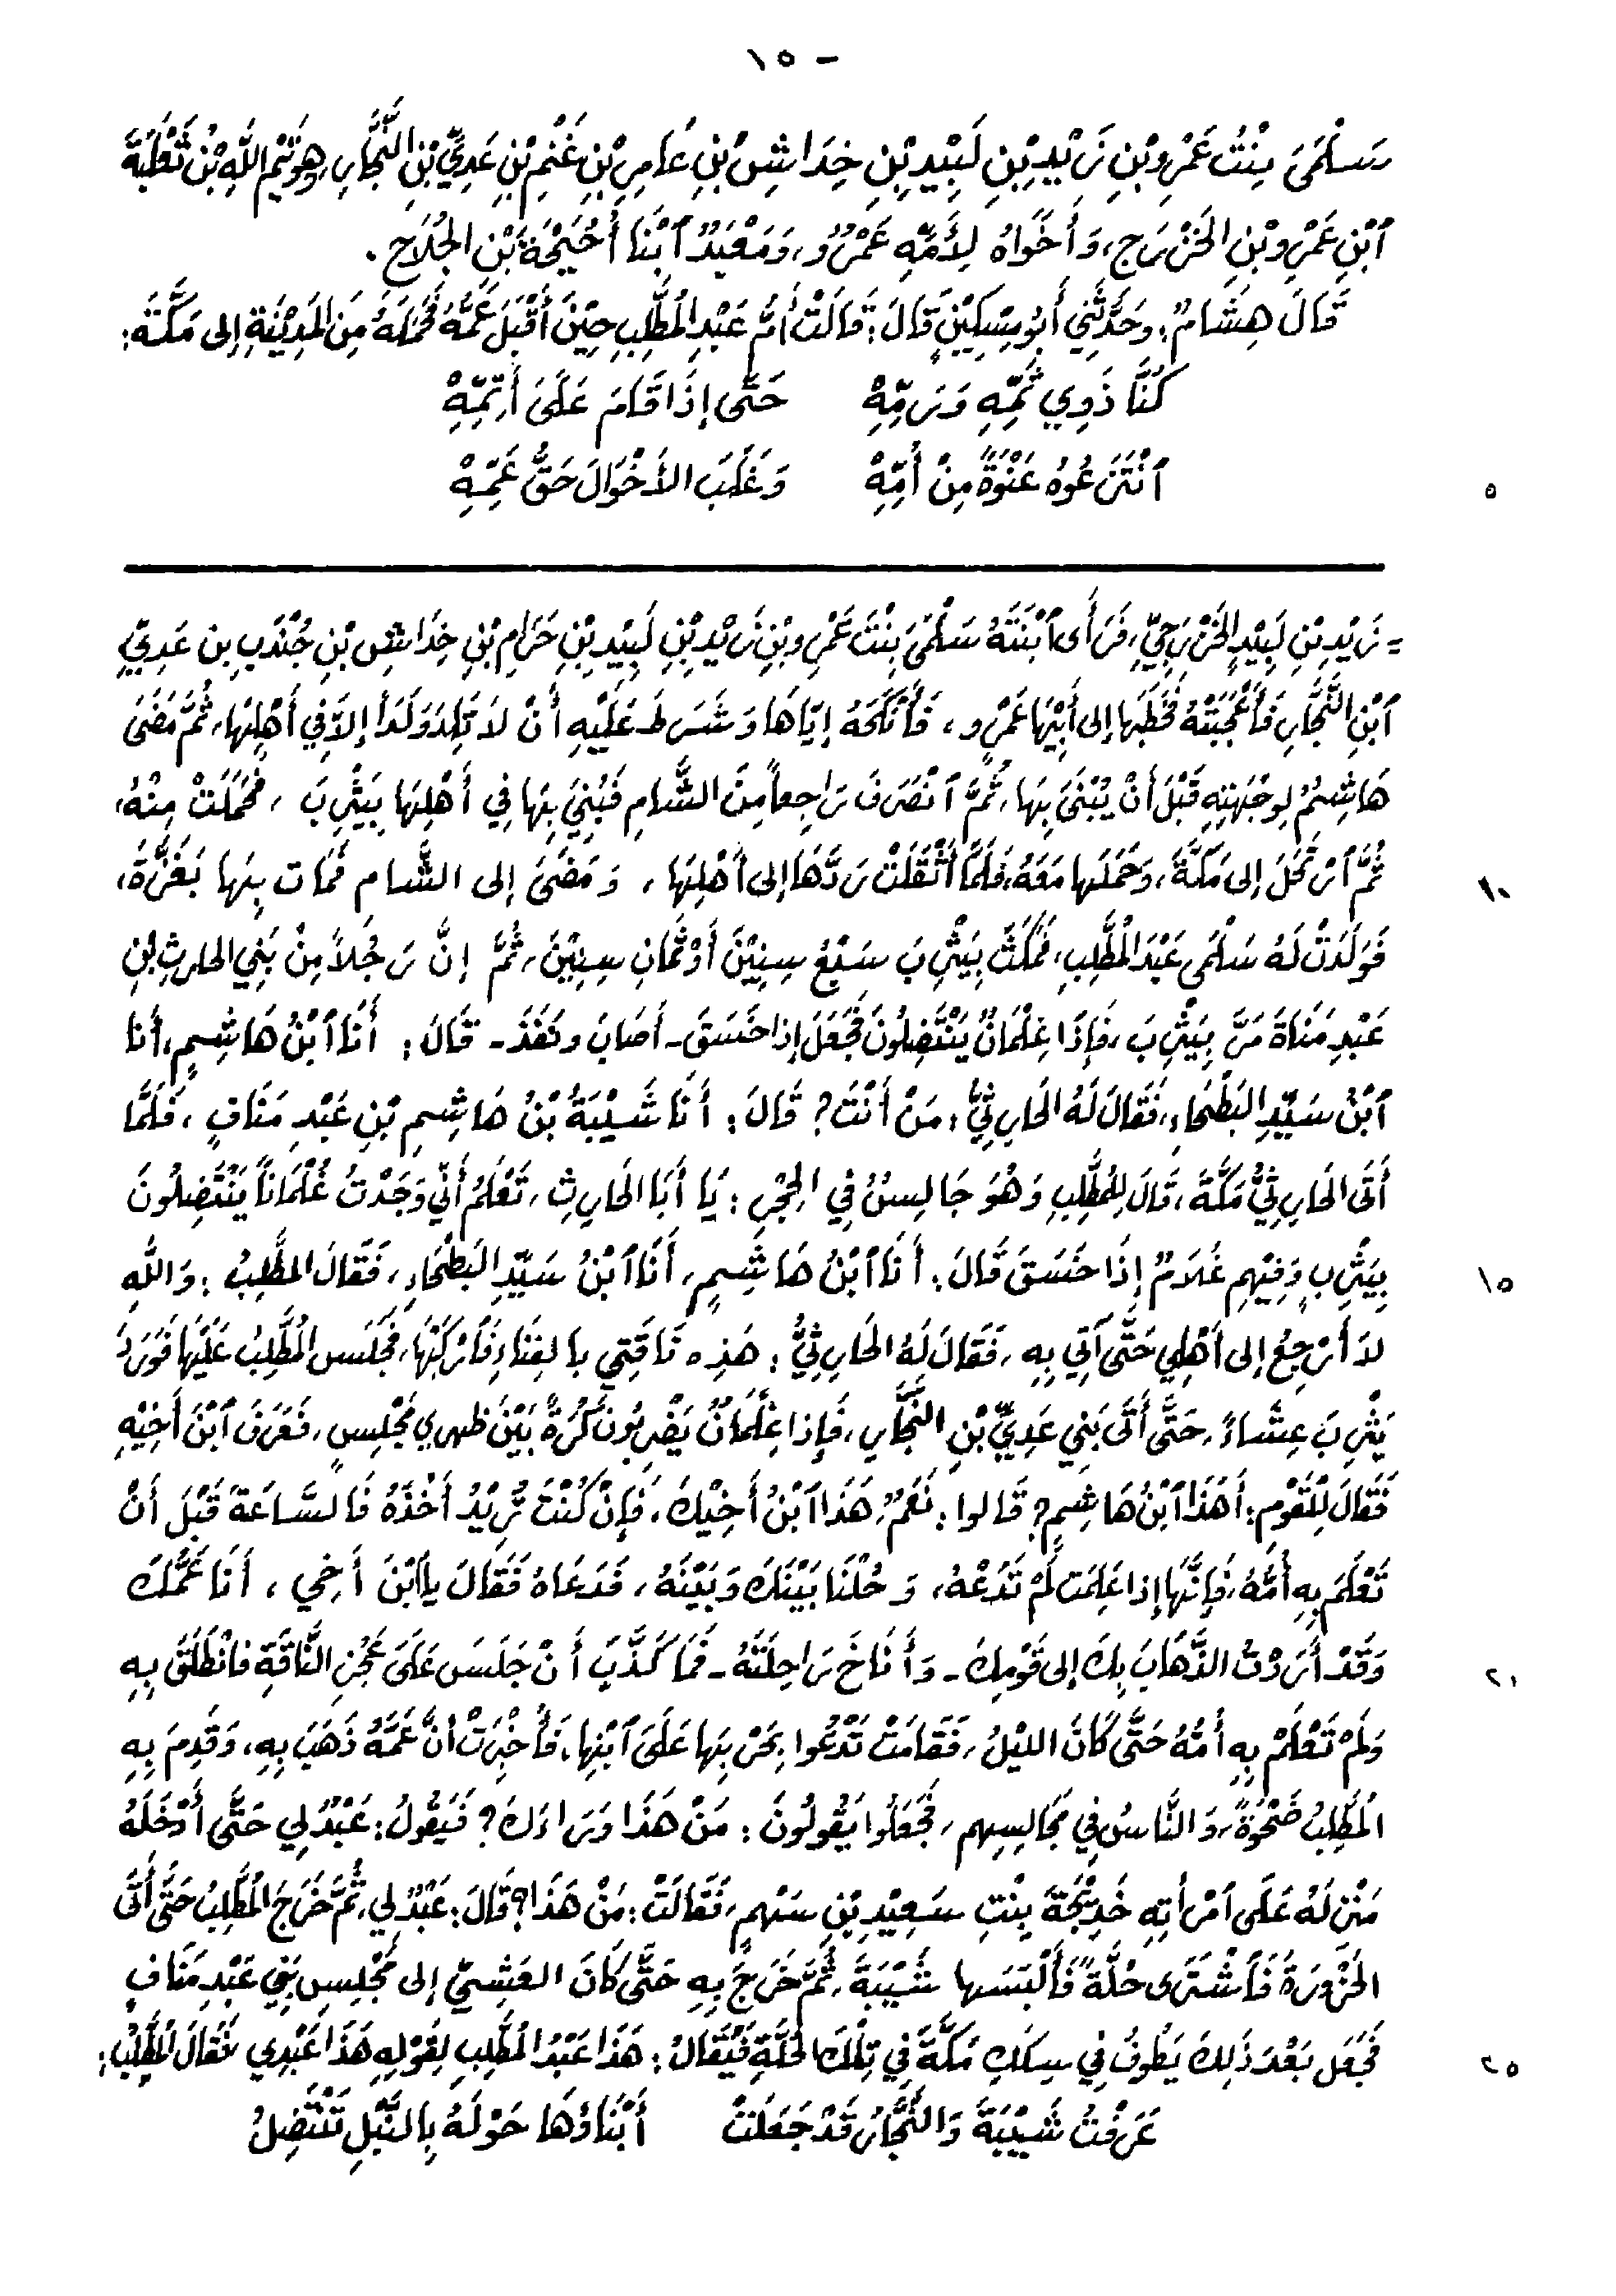 - ١٥
سَلْمَىَ بِنْتُ عَمْرِوبْنِ زَيْدِبْنِ لَبِيْدِبْنِ خِدَاشِ بْنِ عَامِرِبْنِ غَنْمِ بْنِ عَدِيِّ بْنِ النَّجَّارِ، وهُوَتَيْمُ اللّٰهِ بْنُ ثَعْلَبَةَ
ٱبْنِ عَمْرِوبْنِ الخَزْرَجِ، وَأَخَوَاهُ لِأُمِّهِ عَمْرٌو، وَمَعْبَدٌ ٱبْنَا أُحَيْحَةَ بْنِ الجُلَاحِ .
قَالَ هِشَامٌ: وحَدَّثَنِي أَبُو مِسْكِيْنٍ قَالَ: قَالَتْ أُمُّ عَبْدِ المُطَّلِبِ حِيْنَ أَقْبَلَ عَمُّهُ فَحَمَلَهُ مِنَ المَدِيْنَةِ إلى مَكَّةَ:
كُنَّا ذَوِي ثَمِّهِ وَرَمِّهِ حَتَّى إِذَا قَامَ عَلَىَ أَتِمِّهِ
ٱنْتَزَعُوهُ عَنْوَةً مِنْ أُمِّهِ وَغَلَبَ الأَخْوَالَ حَقُّ عَمِّهِ
٥
= زَيْدِبْنِ لَبِيْدٍ الخَزْرَجِيِّ، فَرَأَى ٱبْنَتَهُ سَلْمَىَ بِنْتَ عَمْرِوبْنِ زَيْدِبْنِ لَبِيْدِبْنِ حَرَامِ بْنِ خِدَاشِ بْنِ جُنْدَبِ بن عَدِيِّ
ٱبْنِ النَّجَّارِ فَأَعْجَبَتْهُ فَخَطَبَها إلى أَبِيْهَا عَمْرٍو، فَأَنْكَحَهُ إيّاهَا وَشَرَطَ عَلَيْهِ أَنْ لاَ تَلِدَ وَلَداً إلاَّ فِي أَهْلِهَا، ثُمَّ مَضَىَ
هَاشِمٌ لِوجْهَتِهِ قَبْلَ أَنْ يُبْنَىَ بِهَا، ثُمَّ ٱنْصَرَفَ رَاجِعاً مِنَ الشَّامِ فَبُنِيَ بِهَا فِي أَهْلِهَا بِيَثْرِبَ ، فَحَمَلَتْ مِنْهُ،
ثُمَّ ٱرْتَحَلَ إلى مَكَّةَ، وَحَمَلَها مَعَهُ، فَلَمَّا أَثْقَلَتْ رَدَّهَا إلى أَهْلِهَا، وَمَضَىَ إلى الشَّام فَمَات بِهَا بَغَزَّةَ،
١٠
فَوَلَدَتْ لَهُ سَلْمَى عَبْدَ المُطَّلِبِ، فَمَكَثَ بِيَثْرِبَ سَبْعَ سِنِيْنَ أَوْثَمَانِ سِنِيْنَ، ثُمَّ إنَّ رَجُلاً مِنْ بَنِي الحارِثِ بْنِ
عَبْدِ مَنَاةَ مَرَّ بِيَثْرِبَ ، فَإِذَا غِلْمَانٌ يَنْتَضِلُونَ فَجَعَلَ إذا خَسَقَ - أَصَابَ ونَفَذَ - قَالَ: أَنَا ٱبْنُ هَاشِمٍ، أَنا
ٱبْنُ سَيِّدِ البَطْحَاءِ، فَقَالَ لَهُ الحَارِثِيُّ: مَنْ أَنْتَ؟ قَالَ: أَنَا شَيْبَةُ بْنُ هَاشِمِ بْنِ عَبْدِ مَنَافٍ ، فَلَمَّا
أَتَى الحَارِثِيُّ مَكَّةَ، قَالَ لِلمُطَّلِبِ وَهُوَ جَالِسٌ فِي الحِجْرِ: يَا أَبَا الحَارِثِ، تَعْلَمُ أَنِّي وَجَدْتُ غُلْمَاناً يَنْتَضِلُونَ
بِيَثْرِبٍ وَفِيْهِم غُلَامٌ إذَا خَسَقَ قَالَ: أَنَا ٱبْنُ هَاشِمٍ، أَنَا ٱبْنُ سَيِّدِ البَطْحَاءِ، فَقَالَ المطَّلِبُ: وَاللّٰهِ
١٥
لاَ أَرْجِعُ إلى أَهْلِي حَتَّى آتِيَ بِهِ، فَقَالَ لَهُ الحَارِثِيُّ: هَذِه نَاقَتِي بالفِنَاءِ فَٱرْكَبْهَا، فَجَلَسَ المُطَّلِبُ عَلَيْهَا فَوَرَدَ
يَثْرِبَ عِشَاءً، حَتَّى أَتَى بَنِي عَدِيِّ بْنِ النَّجَّارِ، فَإِذا غِلْمَانٌ يَضْرِبُونَ كُرَةً بَيْنَ ظهري مَجْلِسٍ، فَعَرَفَ ٱبْنَ أَخِيْهِ
فَقَالَ لِلْقَوْمِ: أَهَذَا ٱبْنُ هَاشِمٍ؟ قَالوا: نَعَمْ، هَذَا ٱبْنُ أَخِيْكَ، فَإِنْ كُنْتَ تُرِيْدُ أَخْذَهُ فَالسَّاعَةَ قَبْلَ أَنْ
تَعْلَمَ بِهِ أُمُّهُ، فَإِنَّهَا إذا عَلِمَت لَمْ تَدَعْهُ، وَحُلْنَا بَيْنَكَ وَبَيْنَهُ، فَدَعَاهُ فَقَالَ ياٱبْنَ أَخِي ، أَنَا عَمُّكَ
وَقَدْ أَرَدْتُ الذَّهَابَ بِكَ إلى قَوْمِكَ - وَأَنَاخَ رَاحِلَتَهُ - فَمَا كَذَّبَ أَنْ جَلَسَ عَلَىَ عَجُزِ النَّاقَةِ فانْطَلَقَ بِهِ
٢٠
وَلَمْ تَعْلَمْ بِهِ أُمُّهُ حَتَّى كَانَ الليْلُ، فَقَامَتْ تَدْعُوا بِحَرْبِهَا عَلَىَ ٱبْنِهَا، فَأُخْبِرَتْ أنَّ عَمَّهُ ذَهَبَ بِهِ، وَقَدِمَ بِهِ
المُطَّلِبُ ضَحْوَةً، وَالنَّاسُ فِي مَجَالِسِهِم، فَجَعَلُوا يَقُولُونَ: مَنْ هَذَا وَرَاءَكَ؟ فَيَقُولُ: عَبْدٌ لي حَتَّى أَدْخَلَهُ
مَنْزِلَهُ عَلَى ٱمْرأَتِهِ خَدِيْجَةَ بِنْتِ سَعِيْدِ بْنِ سَهْمٍ، فَقَالَتْ: مَنْ هَذَا؟ قَالَ: عَبْدٌ لِي، ثُمَّ خَرَجَ المُطَّلِبُ حَتَّى أَتَى
الحَزْوَرَةَ فَٱشْتَرَى حُلَّةً فَأَلْبَسَها شَيْبَةَ، ثُمَّ خَرَجَ بِهِ حَتَّى كَانَ العَشِيِّ إلى مَجْلِسِ بَنِي عَبْدِ مَنَافٍ
فَجَعَل بَعْدَ ذَلِكَ يَطُوفُ فِي سِكَكِ مَكَّةَ فِي تِلْكَ الحُلَّةِ فَيُقَالُ: هَذَا عَبْدُ المُطَّلِبِ لِقَوْلِهِ هَذَا عَبْدِي فَقَالَ المُطَّلِبُ:
٢٥
عَرَفْتُ شَيْبَةَ وَالنَّجَّارُ قَدْ جَعَلَتْ أَبْنَاؤهَا حَوْلَهُ بِالنَّبْلِ تَنْتَضِلُ